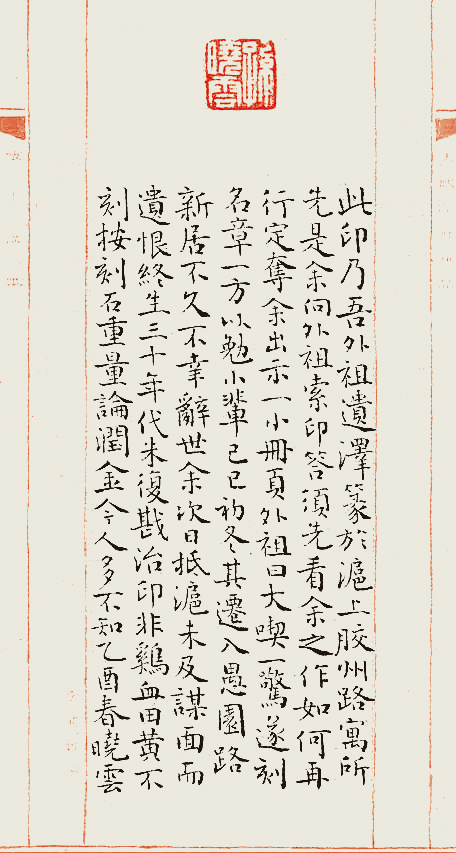 孫曉雲
此印乃吾外祖遺澤篆於滬上胶州路寓所
先是余向外祖索印答須先看余之作如何再
行定奪余出示一小冊頁外祖曰大喫一驚遂刻
名章一方以勉小輩己巳初冬其遷入愚園路
新居不久不幸辭世余次日抵滬未及謀面而
遺恨終生三十年代朱復戡治印非鷄血田黃不
刻按刻石重量論潤金今人多不知乙酉春曉雲